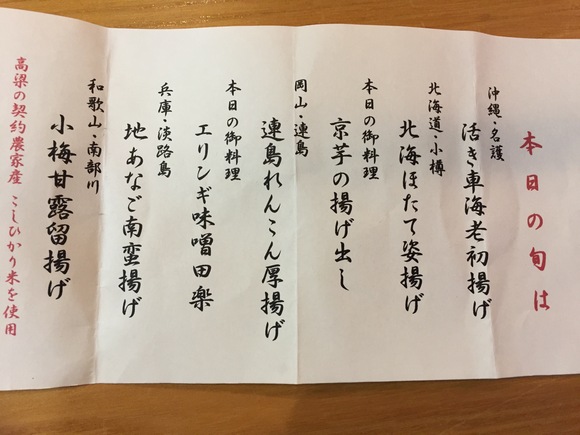 本日の旬は
沖縄・名護
活き車海老初揚げ
北海道・小樽
北海ほたて姿揚げ
本日の御料理
京芋の揚げ出し
岡山・連島
連島れんこん厚揚げ
本日の御料理
エリンギ味噌田楽
兵庫・淡路島
地あなご南蛮揚げ
和歌山・南部川
小梅甘露留揚げ
高梁の契約農家産 こしひかり米を使用